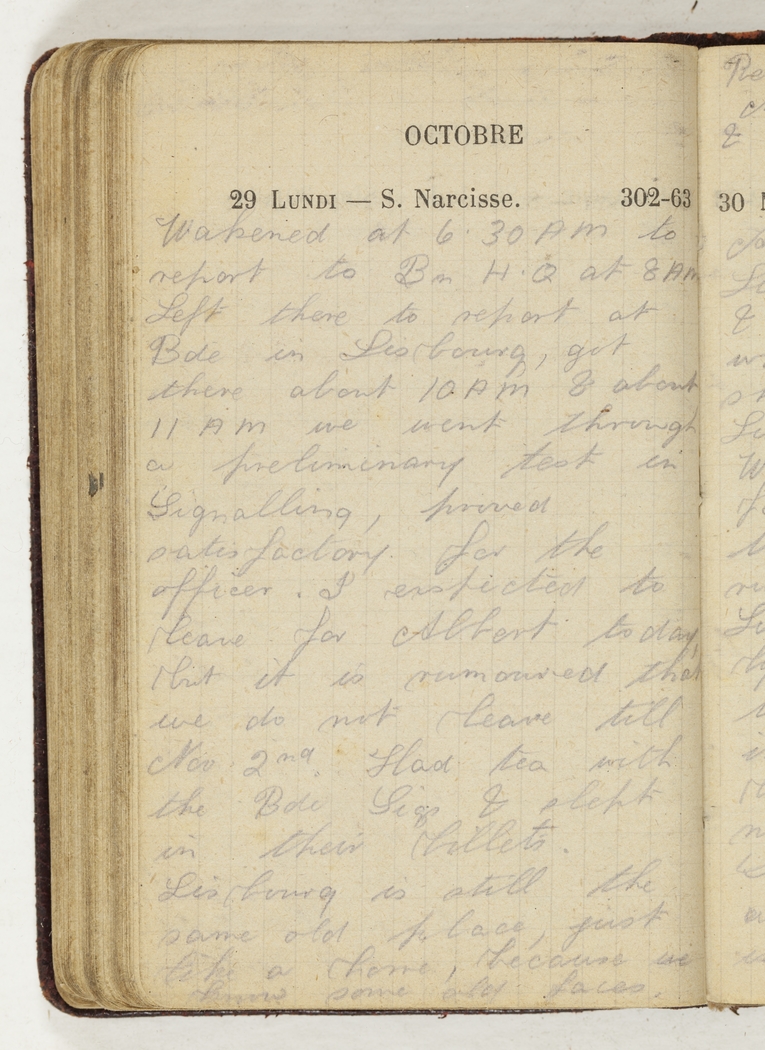 OCTOBRE
29 LUNDI — S. Narcisse. 302-63
Wakened at 6.30 AM to
report to Bn H.Q at 8 AM
Left there to report at
Bde in Lisbourg, got
there about 10 AM & about
11 AM we went through
a preliminary test in
Signalling, proved
satisfactory for the
officer. I expected to
leave for Albert today
but it is rumoured that
we do not leave till
Nov 2nd. Had tea with
the Bde Sigs & slept
in their billets.
Lisbourg is still the
same old place, just
like a home, because we
know some old faces.
30
&
&